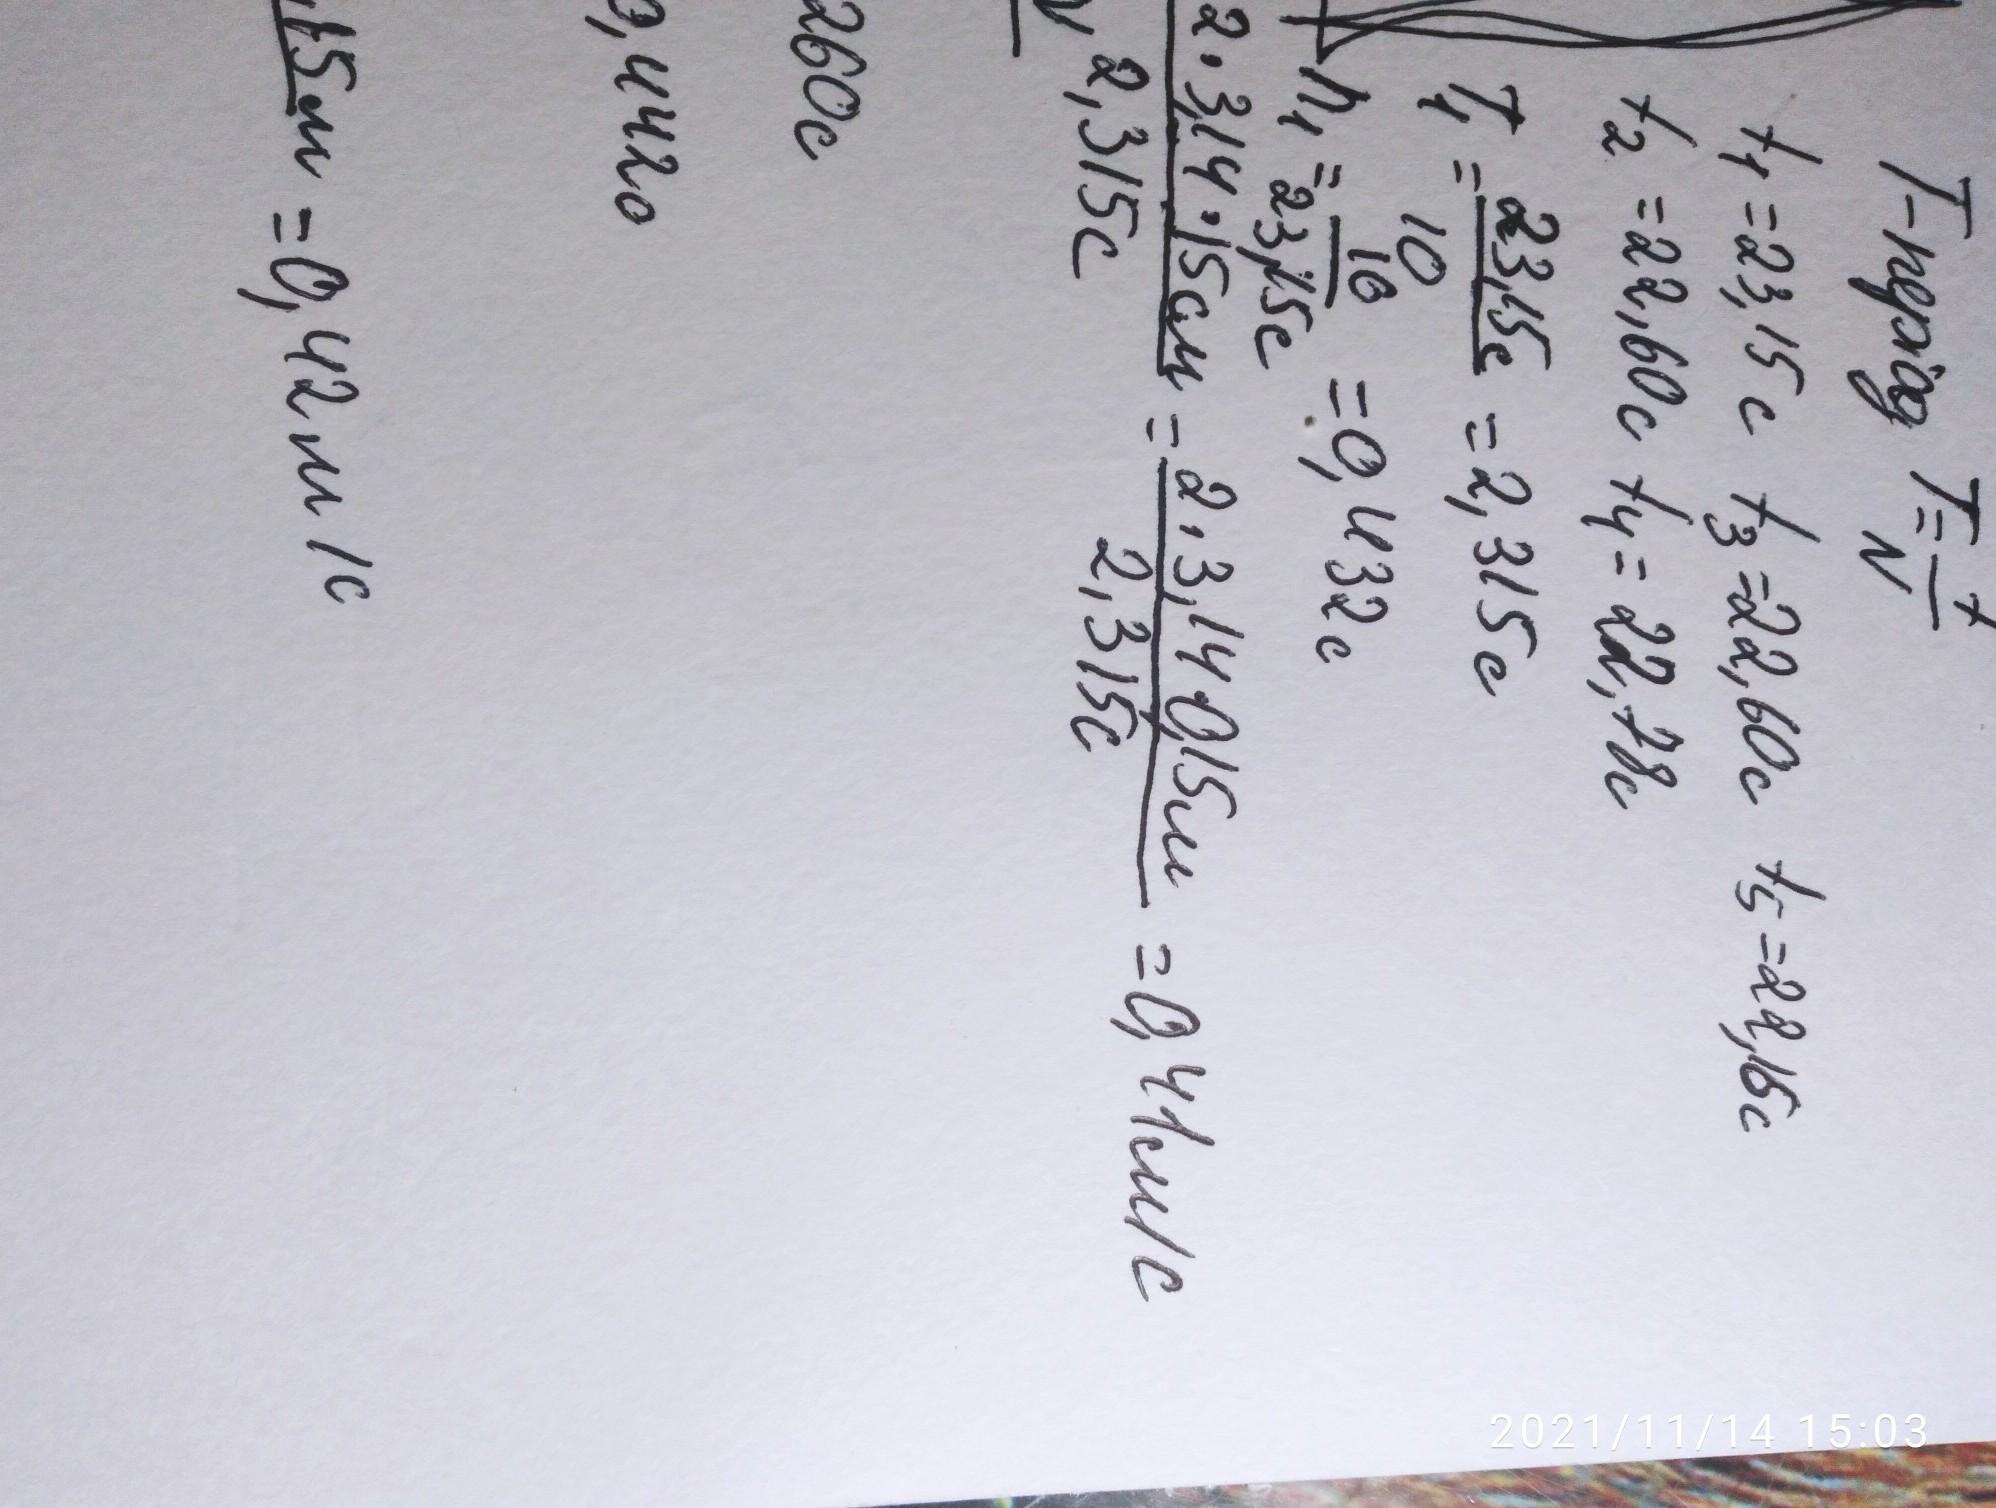 T-період T=t/N
t1=23,15c t3=22,60c t5=22,16c
t2=22,60c t4=22,78c
T1=23,15c/10=2,315c
n1=10/23,15c=0,432c
2·3,14·15см/2,315c=2·3,14·0,15м/2,315c=0,41см/c
N
260c
0,4420
,15м=0,42м/c
2021/11/14 15:03